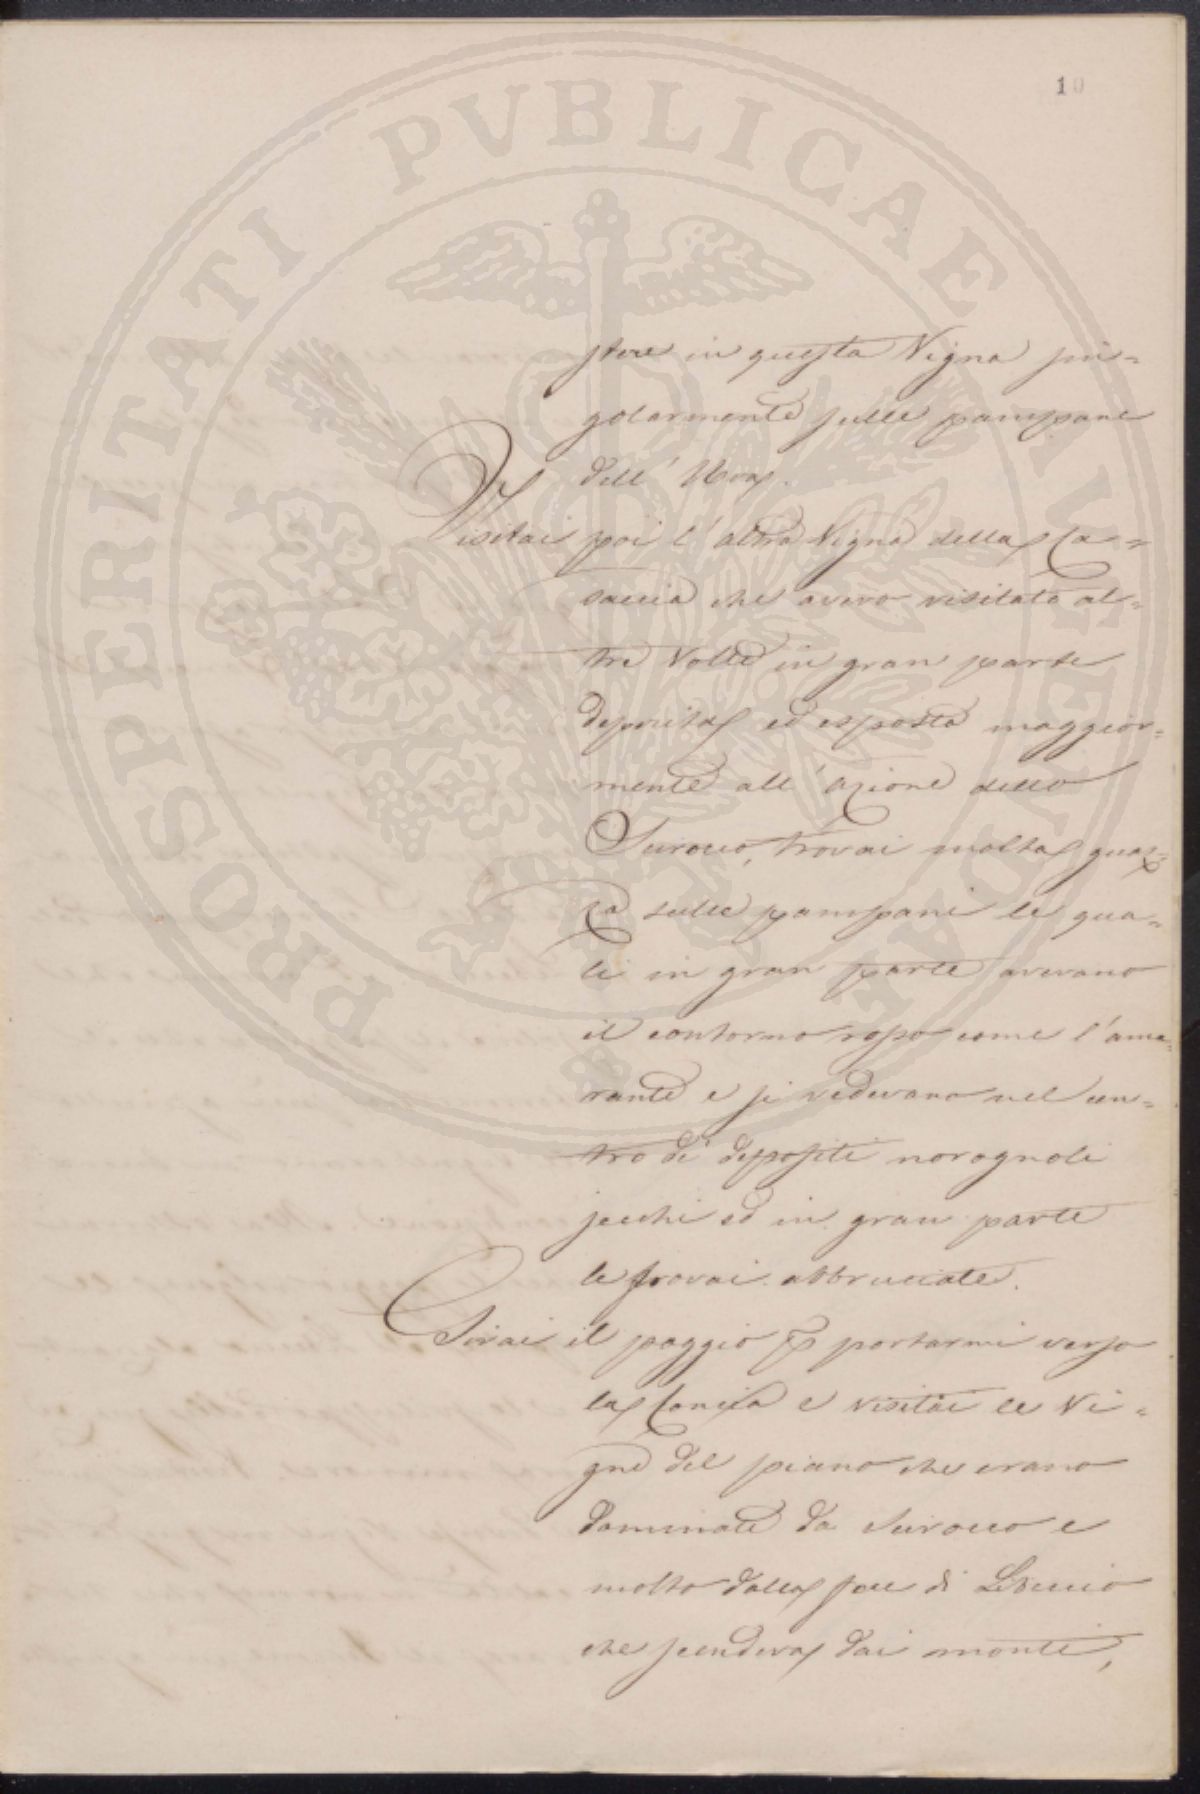 10
PROSPERITATI PVBLICAE AVGENDAE
stere in questa Vigna sin=
golarmente sulle pampane
dell' Uva.
Visitai poi l' altra Vigna della Ca=
saccia che avevo visitata al=
tre volte in gran parte
deperita ed esposta maggior=
mente all' azione dello
Scirocco, trovai molta guaz=
za sulle pampani le qua=
li in gran parte avevano
il contorno rosso come l' ama=
rante e si vedevano nel cen=
tro de' depositi norognoli
secchi ed in gran parte
le trovai abbruciate.
Girai il poggio p portarmi verso
la Concia e visitai le Vi=
gne del piano che erano
dominate da Scirocco e
molto dalla foce di Libeccio
che scendeva dai monti,